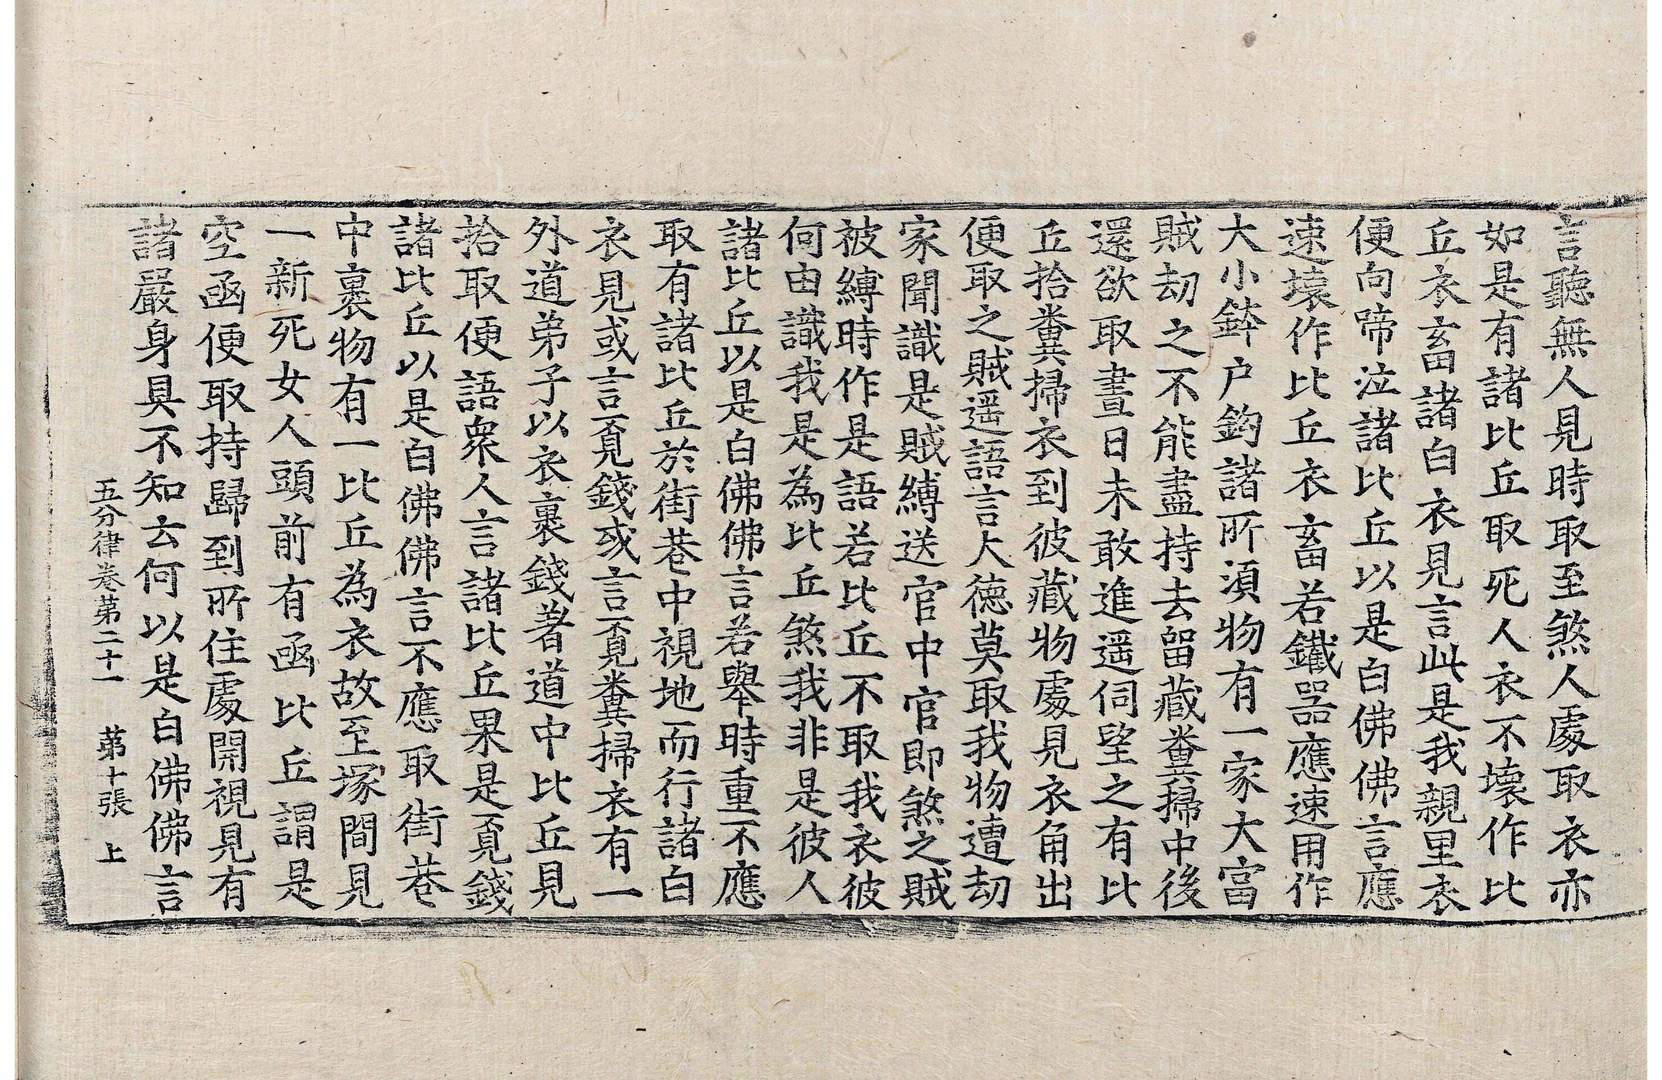 言聽無人見時取至煞人處取衣亦
如是有諸比丘取死人衣不壞作比
丘衣畜諸白衣見言此是我親里衣
便向啼泣諸比丘以是白佛佛言應
速壞作比丘衣畜若鐵器應速用作
大小鉢户鈎諸所湏物有一家大富
賊劫之不能盡持去留藏糞掃中後
還欲取晝日未敢進遥伺望之有比
丘拾糞掃衣到彼藏物處見衣角出
便取之賊遥語言大德莫取我物遭劫
家聞識是賊縛送官中官即煞之賊
被縛時作是語若比丘不取我衣彼
何由識我是為比丘煞我非是彼人
諸比丘以是白佛佛言若舉時重不應
取有諸比丘於街巷中視地而行諸白
衣見或言覔錢或言覔糞掃衣有一
外道弟子以衣裹錢著道中比丘見
拾取便語衆人言諸比丘果是覔錢
諸比丘以是白佛佛言不應取街巷
中裹物有一比丘為衣故至塚間見
一新死女人頭前有凾比丘謂是
空凾便取持歸到所住處開視見有
諸嚴身具不知云何以是白佛佛言
五分律卷第二十一 第十張 上